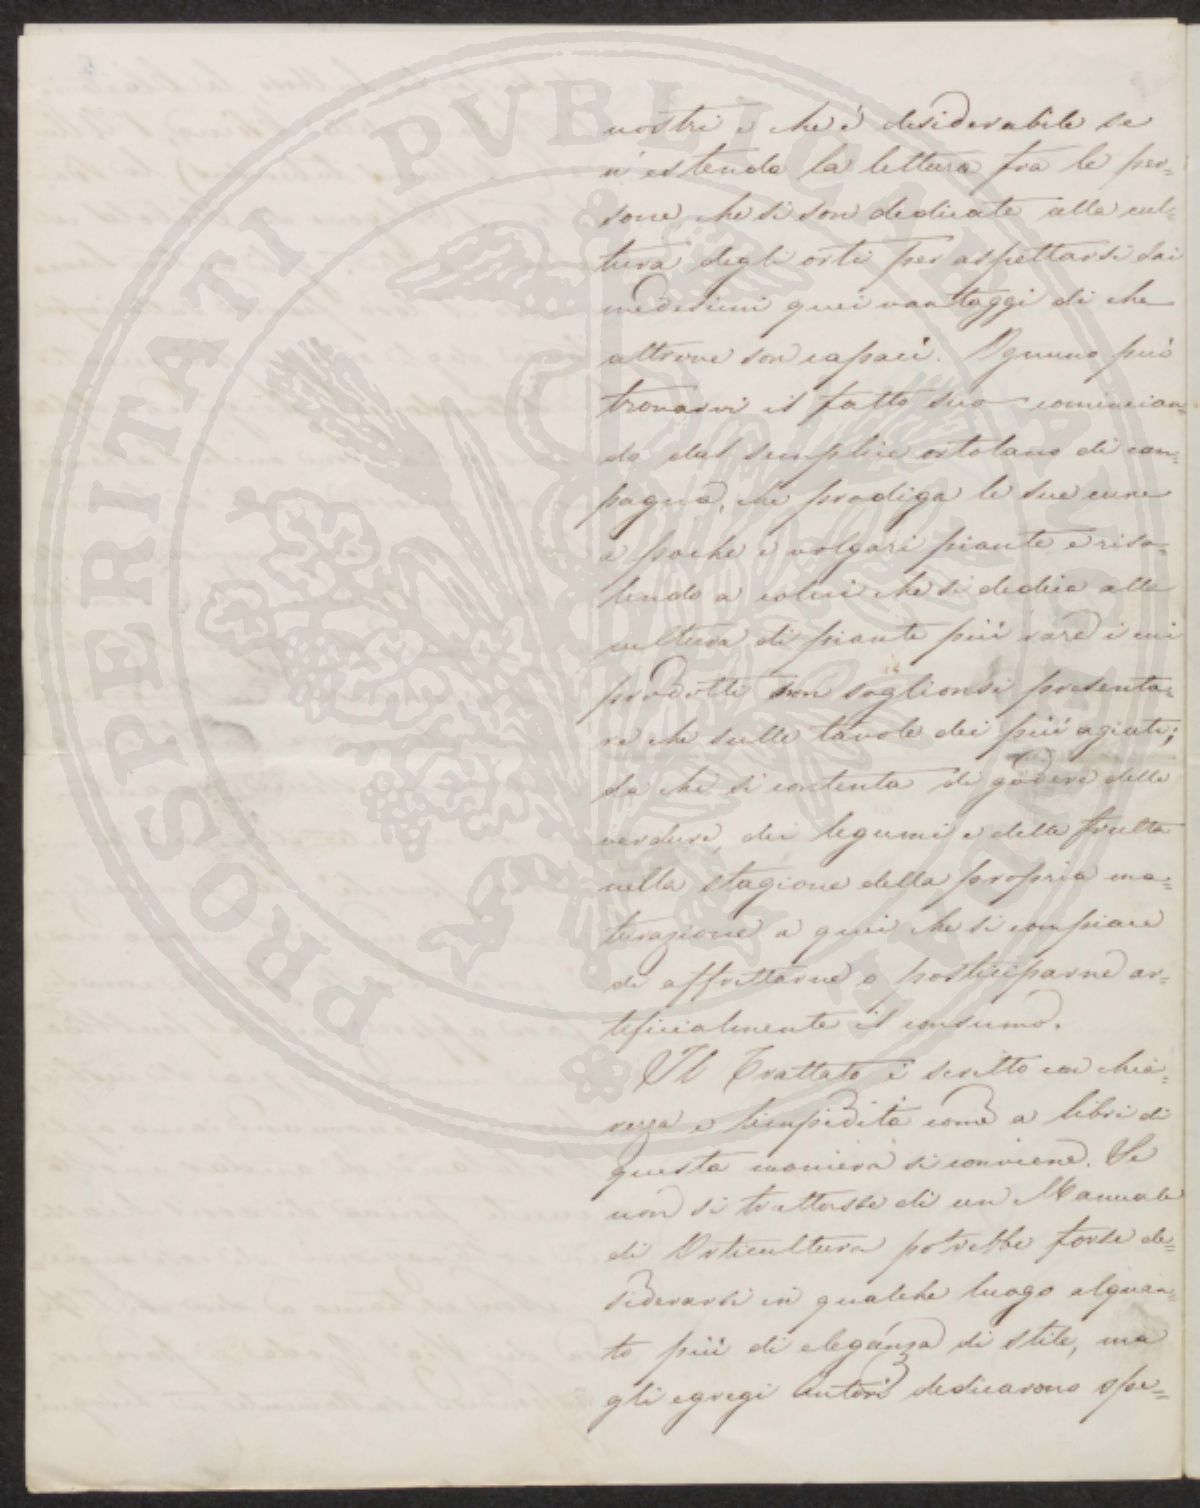 nostri e che è desiderabile se
n'estenda la lettura fra le per=
sone che si son dedicate alla cul=
tura degli orti per aspettarsi dai
medesimi quei vantaggi di che
altrove son capaci. Ognuno può
trovarvi il fatto suo comincian=
do dal semplice ortolano di cam=
pagna, che prodiga le sue cure
a poche e volgari piante e risa=
lendo a colui che si dedica alla
cultura di piante più rare i cui
prodotti non soglionsi presenta=
re che sulle tavole dei più agiati;
da chi si contenta di godere delle
verdure, dei legumi e delle frutta
nella stagione della propria ma=
turazione a quei che si compiace
di affrettarne o posticiparne ar=
tificialmente il consumo.
Il Trattato è scritto con chia=
rezza e limpidità come a libri di
questa maniera si conviene. Se
non si trattasse di un Manuale
di Orticultura potrebbe forse de=
siderarsi in qualche luogo alquan=
to più di eleganza di stile, ma
gli egregi Autori dedicarono spe=
PROSPERITATI PVBLICAE